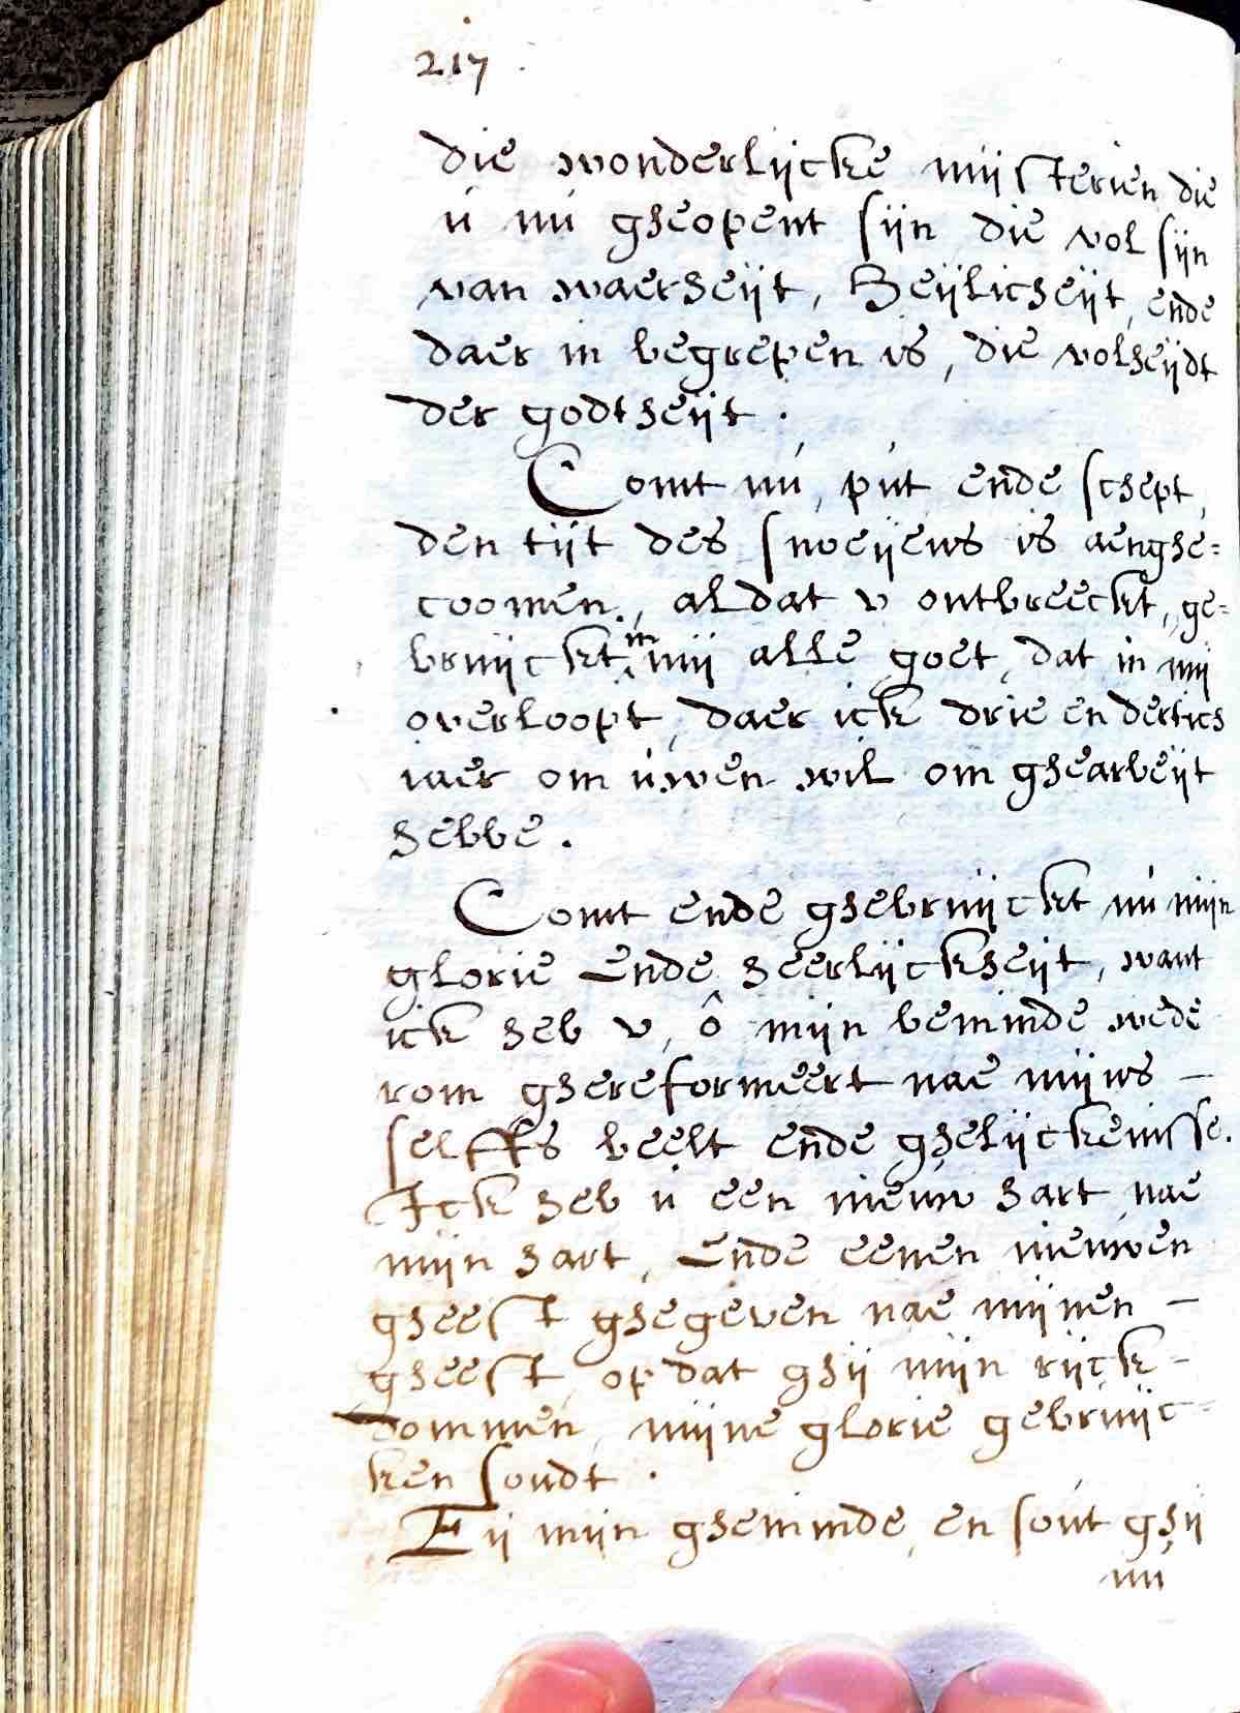 217
die wonderlijcke mijsterien die
ú nú gheopent sijn die vol sijn
van waerheijt, Heijlicheijt, ende
daer in begrepen is, die volheijdt
der godtheijt.
Comt nú, pút ende schept,
den tijt des snoeijens is aenghe=
coomen, al dat v ontbreeckt, ge=
bruijckt in mij alle goet, dat in mij
overloopt, daer ick drie en dertich
iaer om úwen wil om ghearbeijt
hebbe.
Comt ende ghebruijckt nú mijn
glorie ende heerlijckheijt, want
ick heb v, ô mijn beminde wede
rom ghereformeert nae mijns —
selffs beelt ende ghelijckenisse.
Ick heb ú een nieuw hart nae
mijn hart, ende eenen nieuwen
gheest ghegeven nae mijnen —
gheest, op dat ghij mijn rijck-
dommen, mijne glorie gebruijc-
ken soudt.
Eij mijn gheminde, en soút ghij
nú